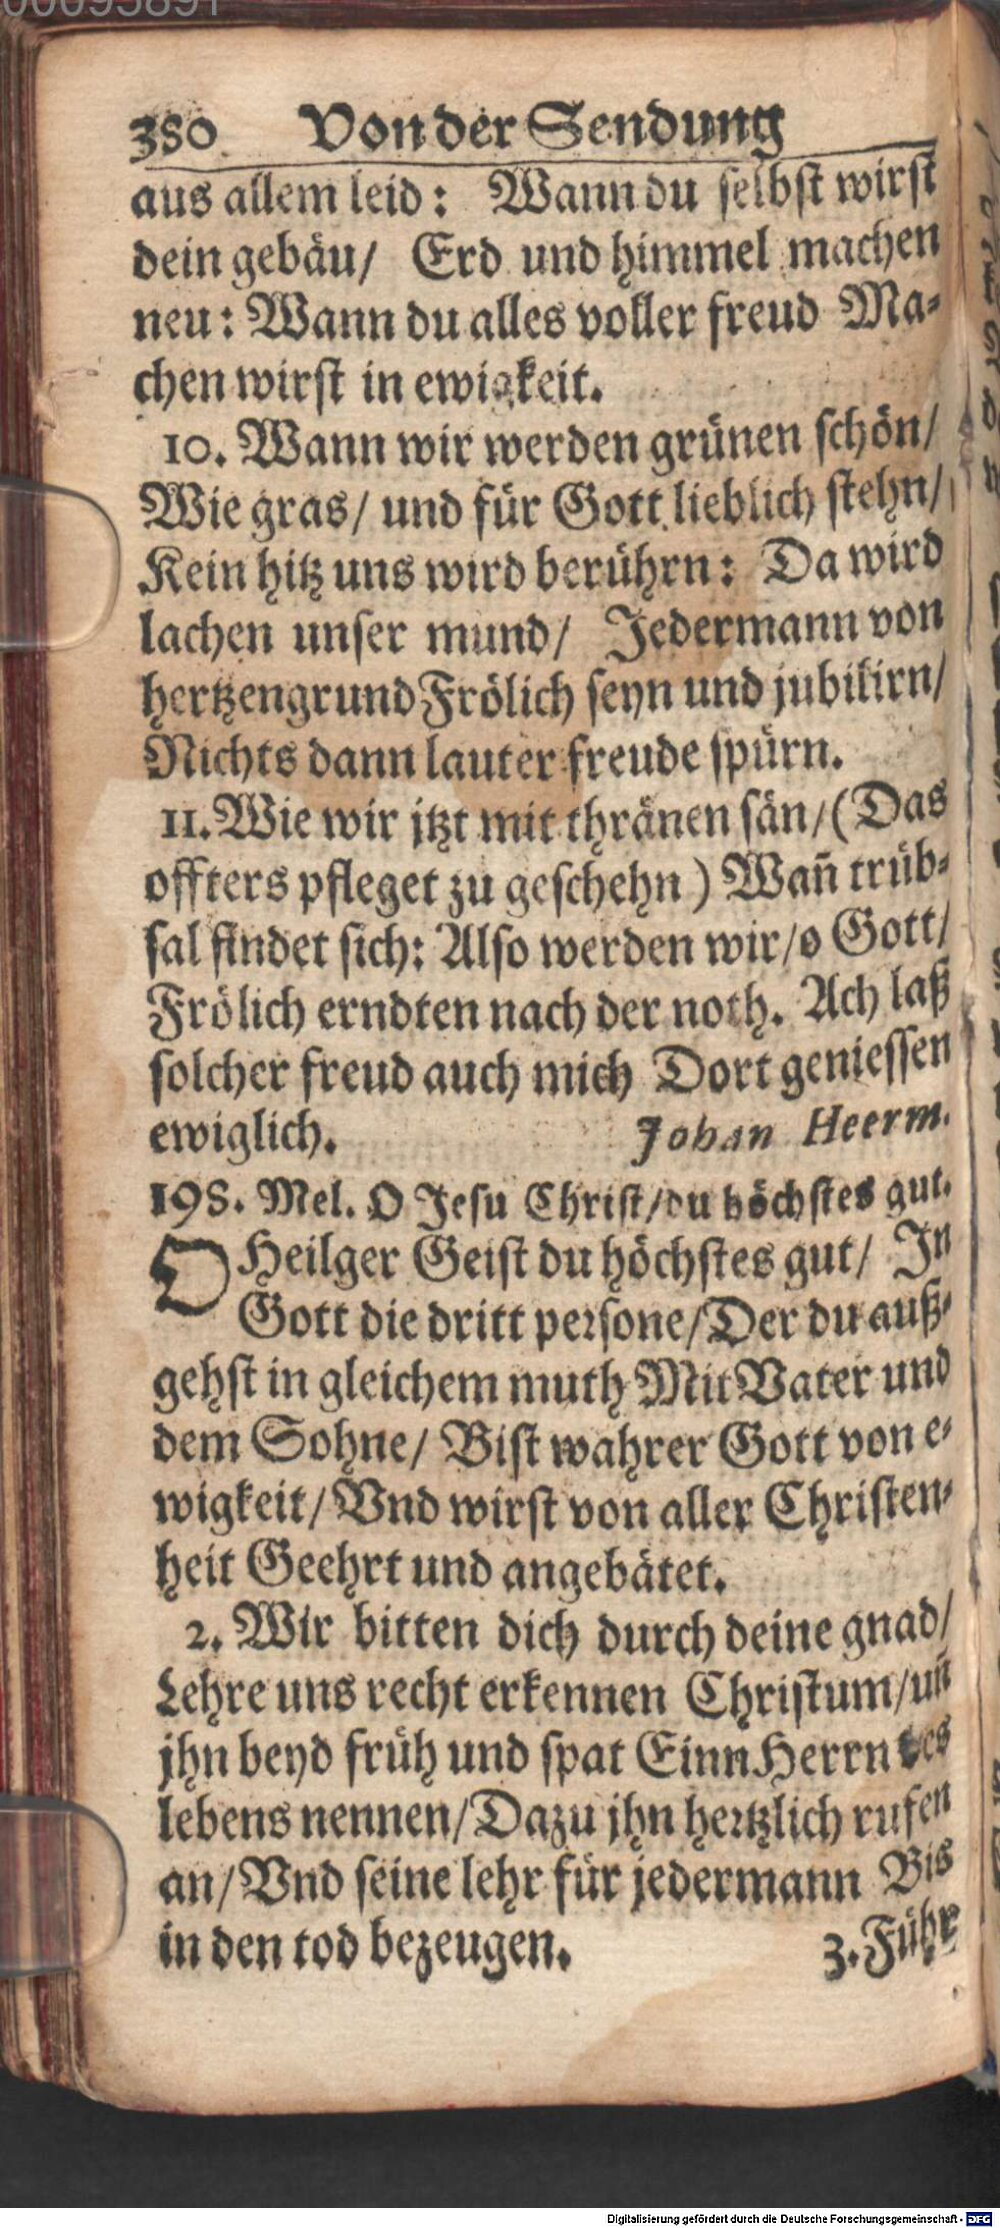 00095891
380 Von der Sendung
aus allem leid: Wann du selbst wirst
dein gebäu/ Erd und himmel machen
neu: Wann du alles voller freud Ma-
chen wirst in ewigkeit.
10. Wann wir werden grünen schön/
Wie gras/ und für Gott lieblich stehn/
Kein hitz uns wird berührn: Da wird
lachen unser mund/ Jedermann von
hertzengrund Frölich seyn und jubilirn/
Nichts dann lauter freude spürn.
11. Wie wir jtzt mit thränen sän/ (Das
offters pfleget zu geschehn) Wañ trüb-
sal findet sich: Also werden wir/ o Gott/
Frölich erndten nach der noth. Ach laß
solcher freud auch mich Dort geniessen
ewiglich. Johan Heerm.
198. Mel. O Jesu Christ/ du höchstes gut.
O Heilger Geist du höchstes gut/ In
Gott die dritt persone/ Der du auß-
gehst in gleichem muth Mit Vater und
dem Sohne/ Bist wahrer Gott von e-
wigkeit/ Vnd wirst von aller Christen-
heit Geehrt und angebätet.
2. Wir bitten dich durch deine gnad/
Lehre uns recht erkennen Christum/ uñ
jhn beyd früh und spat Einn Herrn des
lebens nennen/ Dazu jhn hertzlich rufen
an/ Vnd seine lehr für jedermann Bis
in den tod bezeugen. 3. Führ
Digitalisierung gefördert durch die Deutsche Forschungsgemeinschaft - DFG